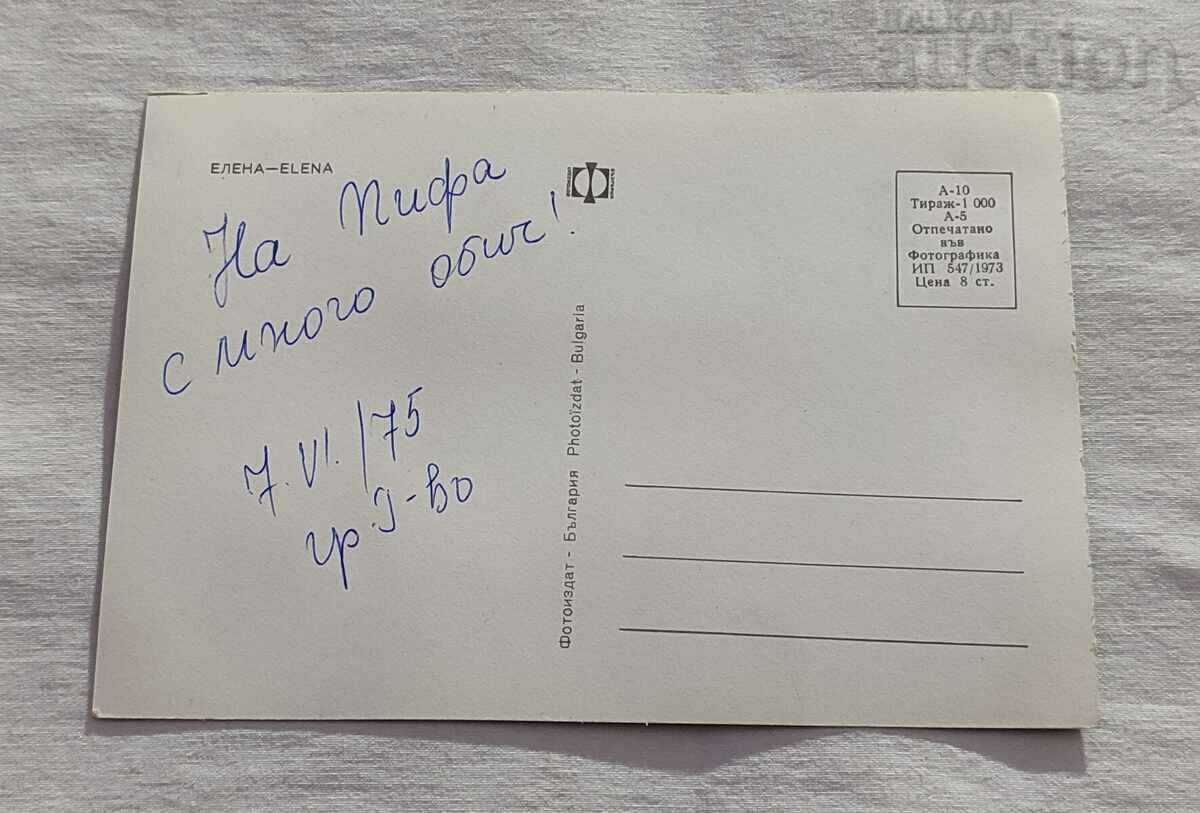 BALKAN
auction
ЕЛЕНА—ELENA
На Пифа
с много обич!
7.VI./75
гр. Г-во
А-10
Тираж-1 000
А-5
Отпечатано
във
Фотографика
ИП 547/1973
Цена 8 ст.
Фотоиздат - България Photoizdat - Bulgaria